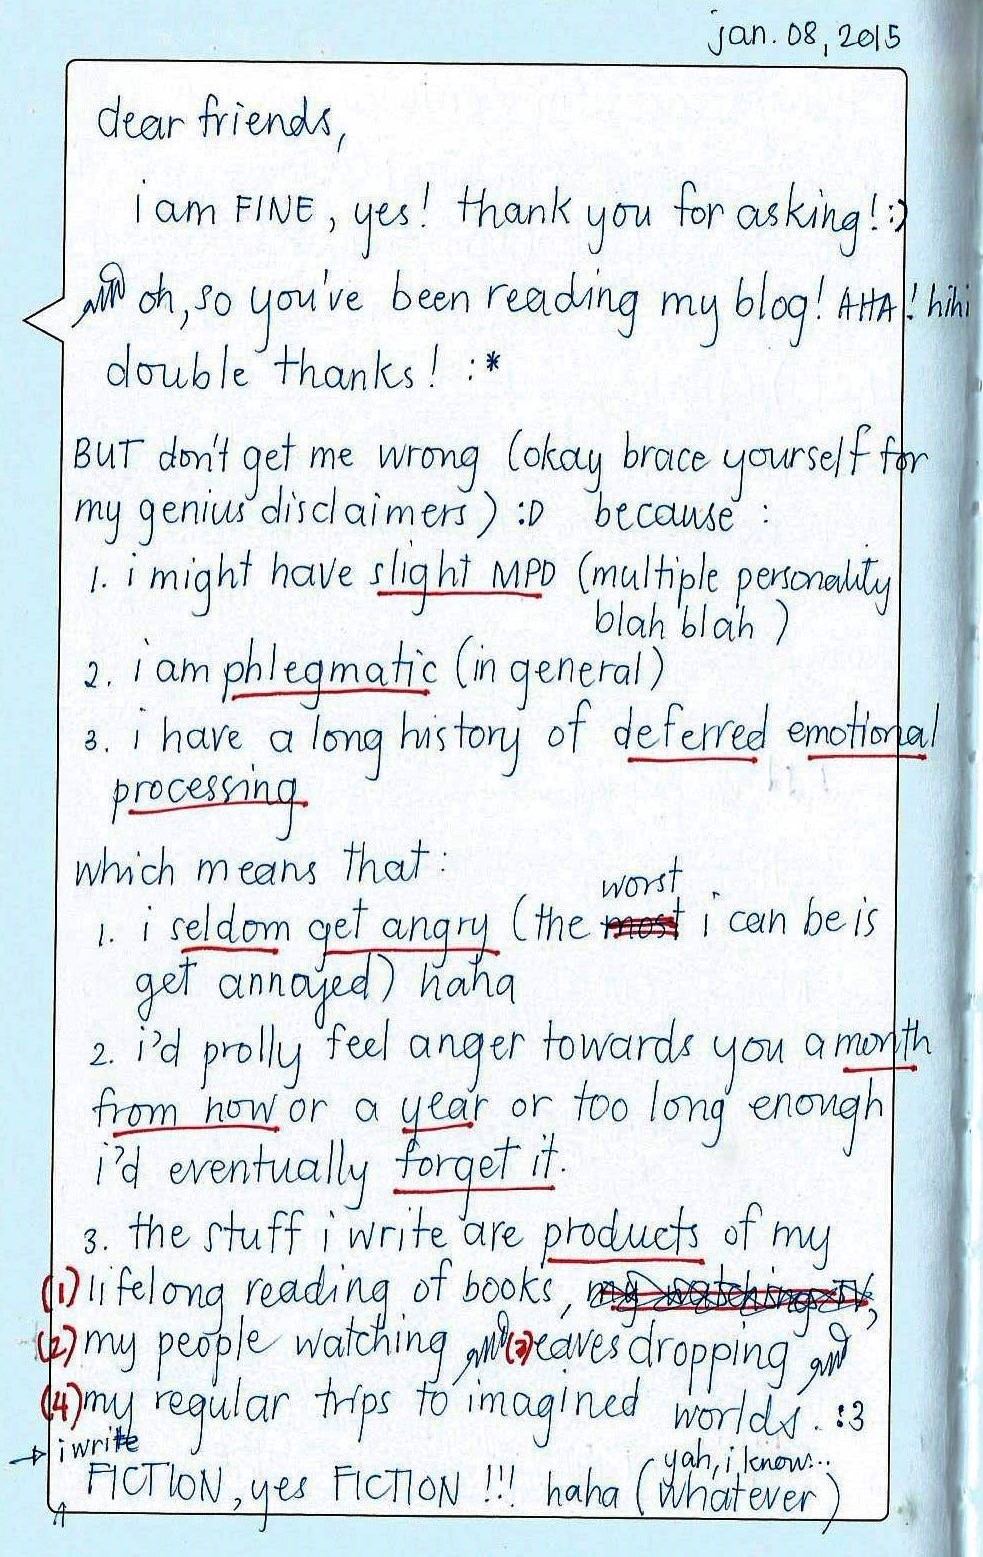 jan. 08, 2015
dear friends,
i am FINE, yes! thank you for asking! :)
and oh, so you've been reading my blog! AHA! hihi
double thanks! :*
BUT don't get me wrong (okay brace yourself for
my genius disclaimers) :D because :
1. i might have slight MPD (multiple personality
blah blah)
2. i am phlegmatic (in general)
3. i have a long history of deferred emotional
processing.
which means that:
worst
1. i seldom get angry (the most i can be is
get annoyed) haha
2. i'd prolly feel anger towards you a month
from now or a year or too long enough
i'd eventually forget it.
3. the stuff i write are products of my
(1) lifelong reading of books, my watching TV,
(2) my people watching and (3) eavesdropping and
(4) my regular trips to imagined worlds. :3
→ i write
yah, i know...
FICTION, yes FICTION !!! haha (whatever)